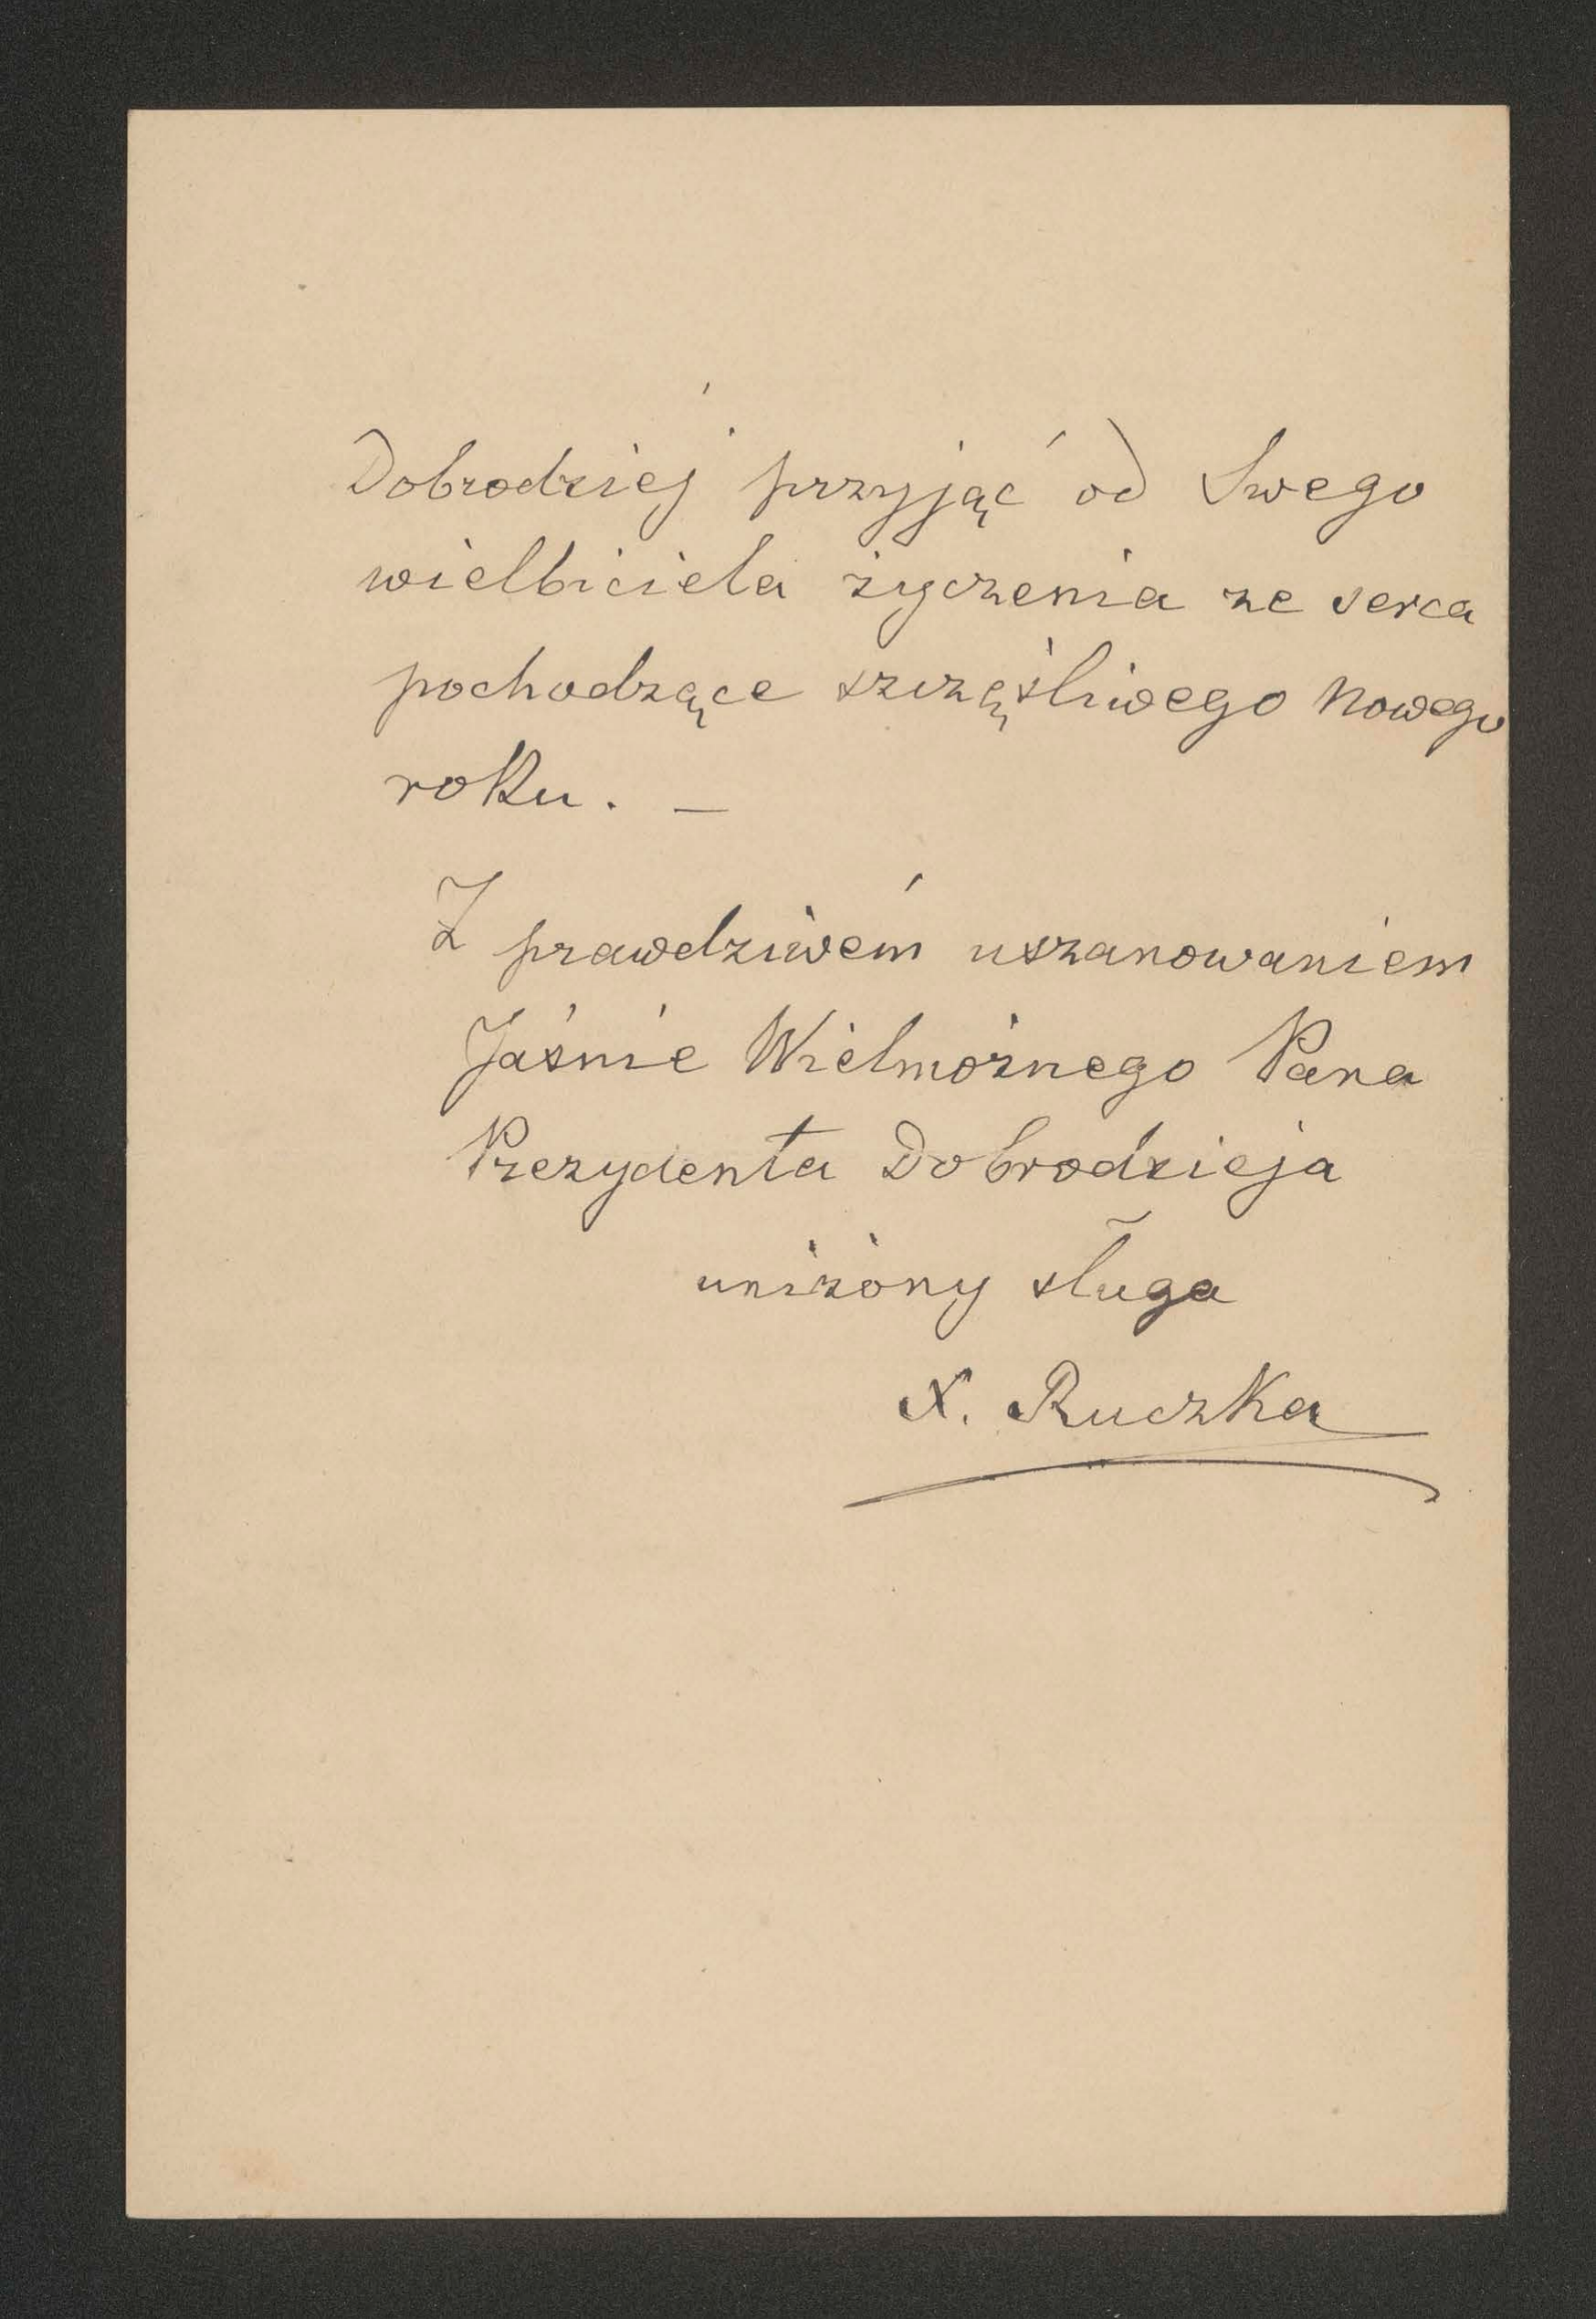 Dobrodziej przyjąć od Swego
wielbiciela życzenia ze serca
pochodzące szczęśliwego Nowego
roku. —
Z prawdziwém uszanowaniem
Jaśnie Wielmożnego Pana
Prezydenta Dobrodzieja
uniżony sługa
X. Ruczka